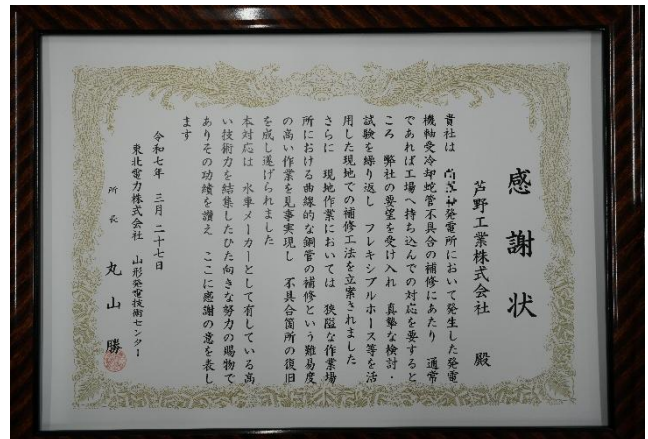 感謝状
芦野工業株式会社 殿
貴社は 発電所において発生した発電
機軸受冷却蛇管不具合の補修にあたり 通常
であれば工場へ持ち込んでの対応を要すると
ころ 弊社の要望を受け入れ 真摯な検討・
試験を繰り返し フレキシブルホース等を活
用した現地での補修工法を立案されました
さらに 現地作業においては 狭隘な作業場
所における曲線的な銅管の補修という難易度
の高い作業を見事実現し 不具合箇所の復旧
を成し遂げられました
本対応は 水車メーカーとして有している高
い技術力を結集したひた向きな努力の賜物で
ありその功績を讃え ここに感謝の意を表し
ます
令和七年 三月 二十七日
東北電力株式会社 山形発電技術センター
所長 丸山 勝